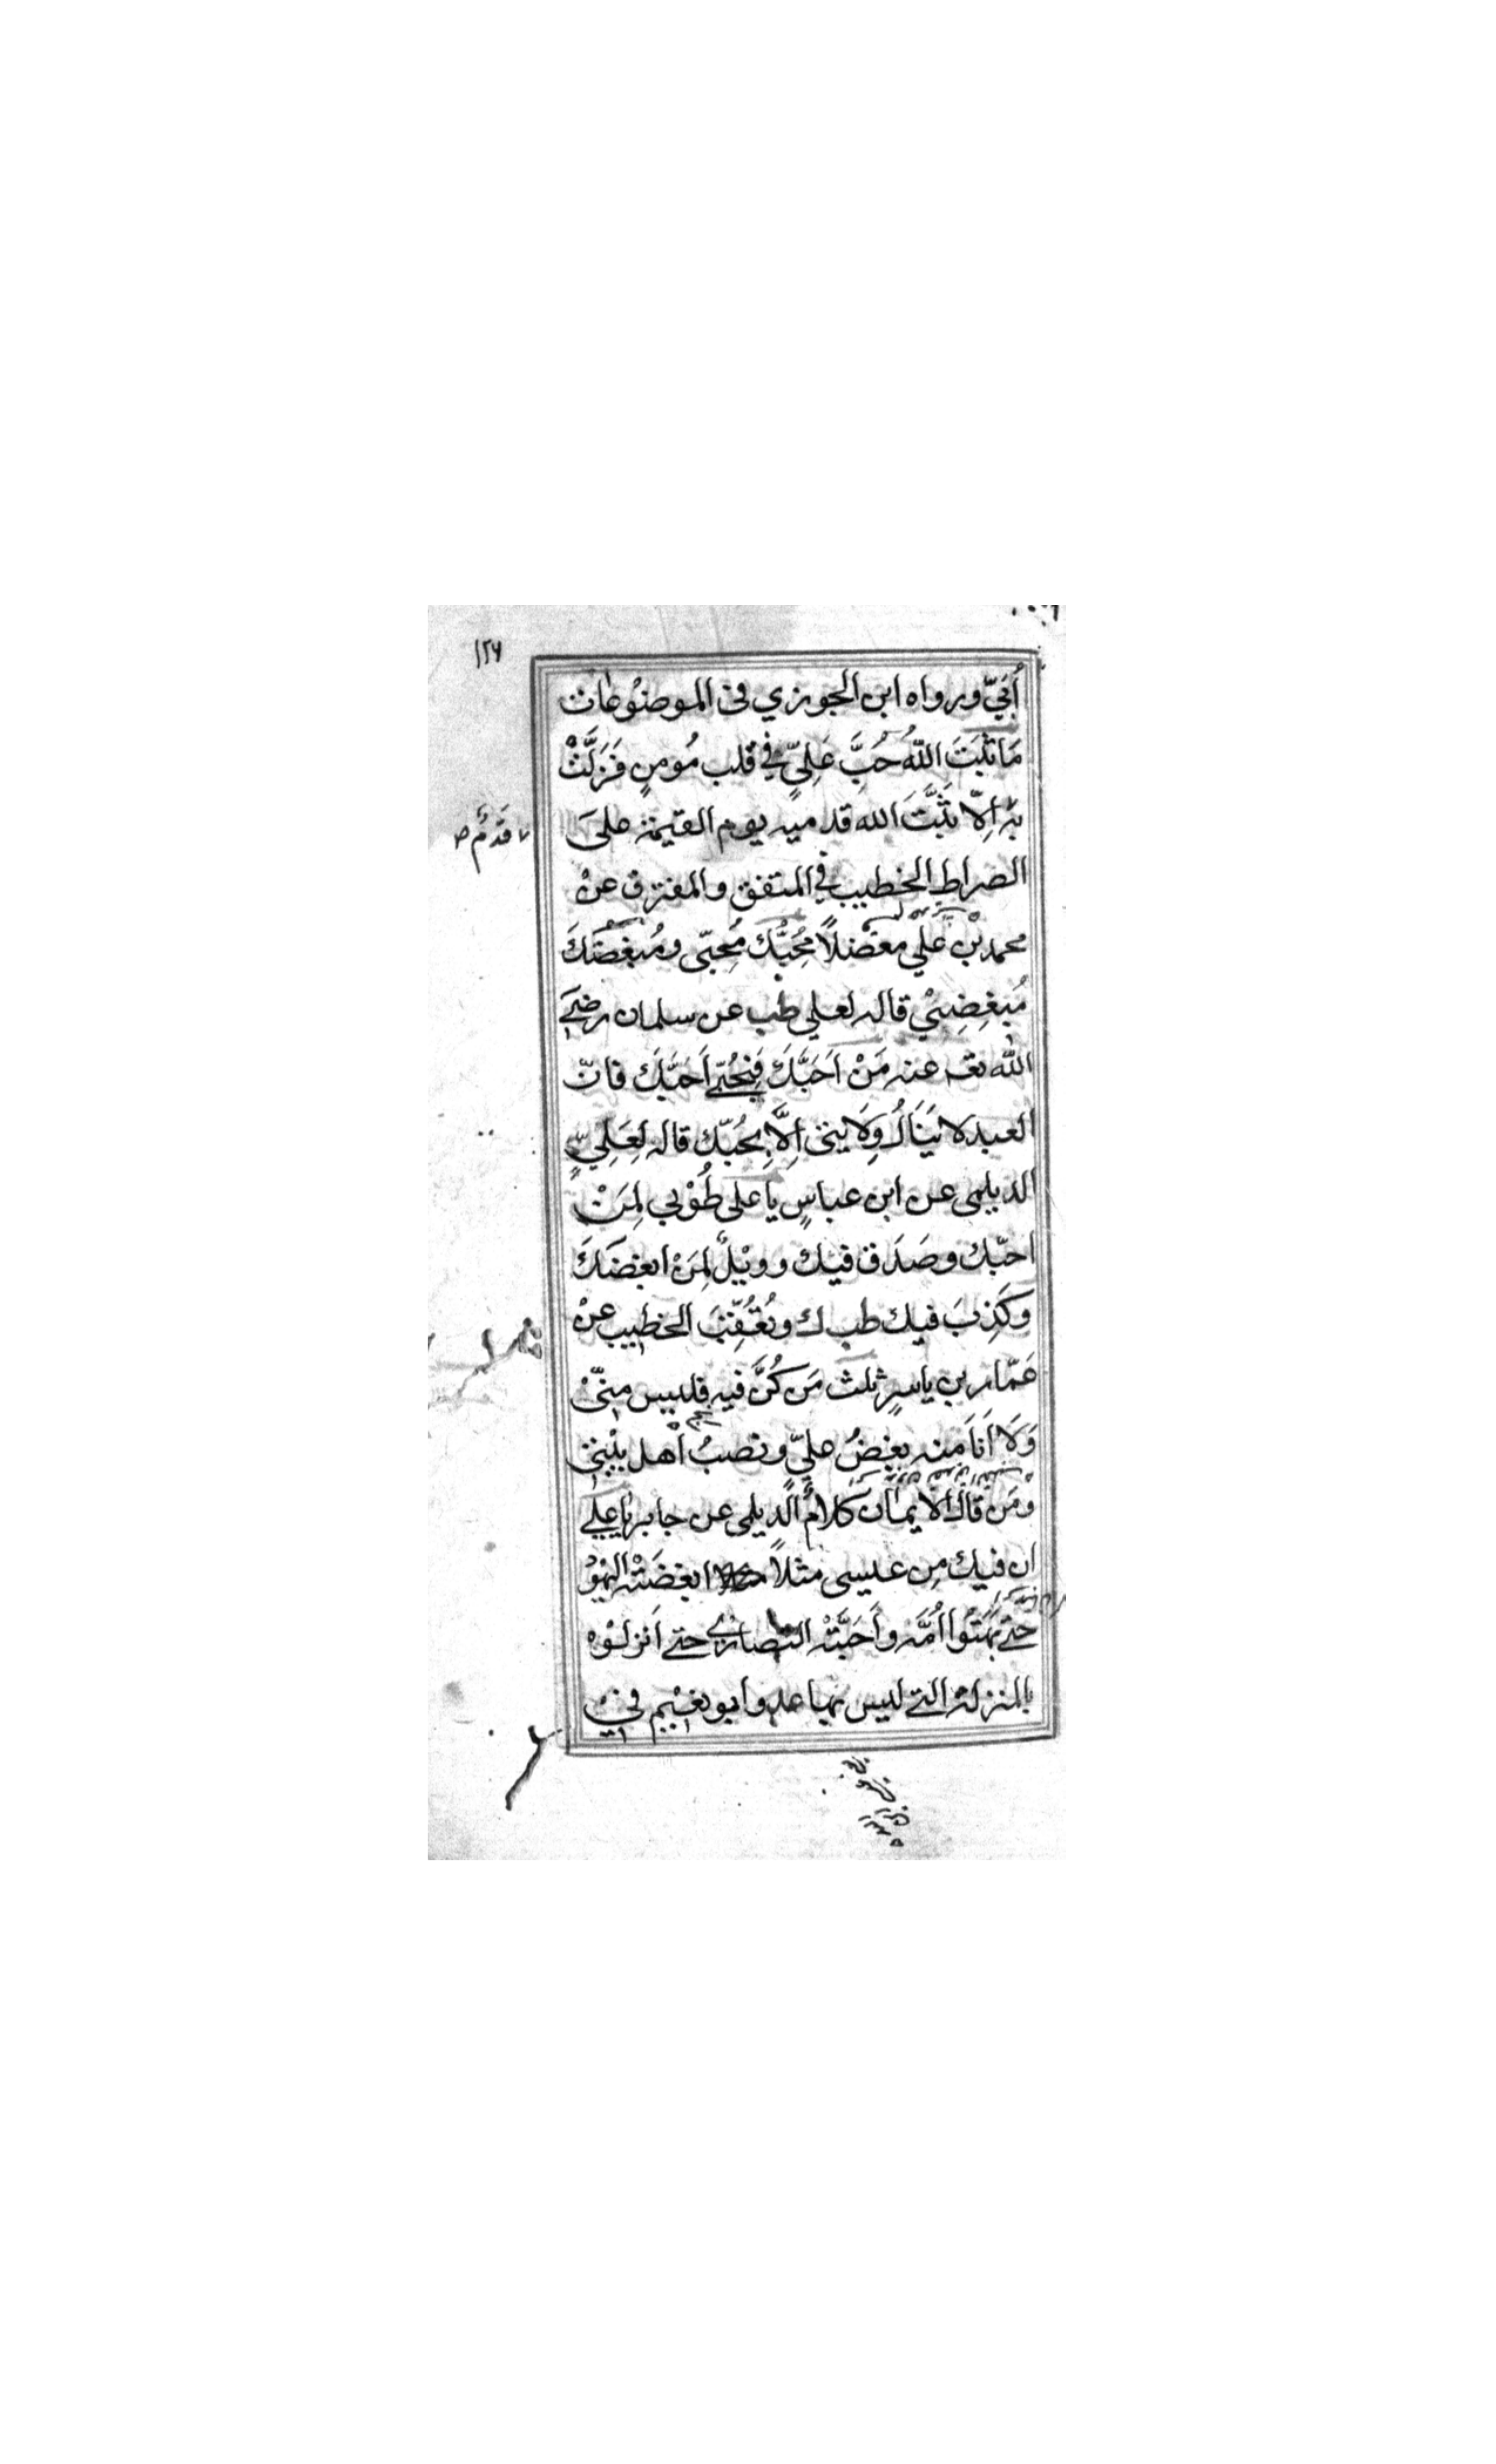 ١٢٦
أُبَيّ ورواه ابن الجوزي في الموضوعات
مَا ثَبَتَ اللهُ حُبَّ عَلِيٍّ في قلب مُومنٍ فَزَلَّتْ
قدمٌ ص
به اِلّا ثَبَّتَ الله قدميه يوم القيمة علىَ
الصراط الخطيب في المتفق والمفترق عنْ
محمد بْن عَلي معضلاً مُحِبُّك مُحِبّي ومُبغضكَ
مُبغِضِيْ قاله لعلي طب عن سلمان رضي
الله تع عنه مَنْ اَحَبَّكَ فَبِحُبّي اَحَبَّكَ فانّ
العبد لا يَنَال وِلَايتي اِلَّا بِحُبّك قاله لِعَلِيٍّ
الديلمى عن ابن عباسٍ يا على طُوْبي لِمَنْ
احبّك وصَدَق فيك وويْلٌ لِمَنْ ابغضَكَ
وَكَذِبَ فيك طب ك وتُعُقِّبَ الخطيب عنْ
عَمّار بن ياسرٍ ثلث مَن كُنَّ فيه فليس مِنّيْ
وَلَا اَنَا مِنه بغضُ عليّ ونصبُ اَهل بيْتي
ومَن قال الايمان كلامٌ الديلمى عن جابر يا علي
ان فيك مِن عيسى مثلاً ابغضَتْه اليهوْ
حتى بَهَتُوا اُمَّه واَحَبَّتْه النصارى حتى اَنزلوْه
بالمنزلة التي ليس بها عد وابو نعيْم في